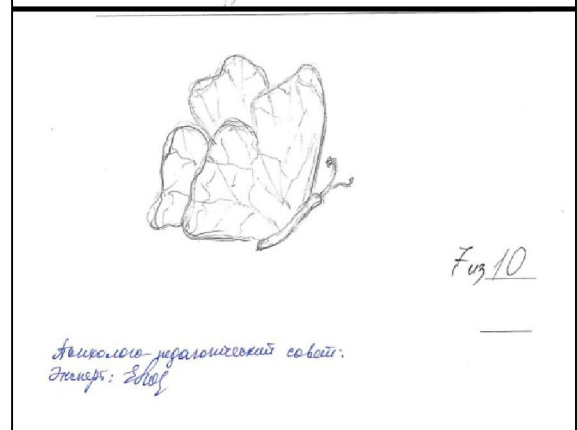 7 из 10
Психолого-педагогический совет:
Эксперт: